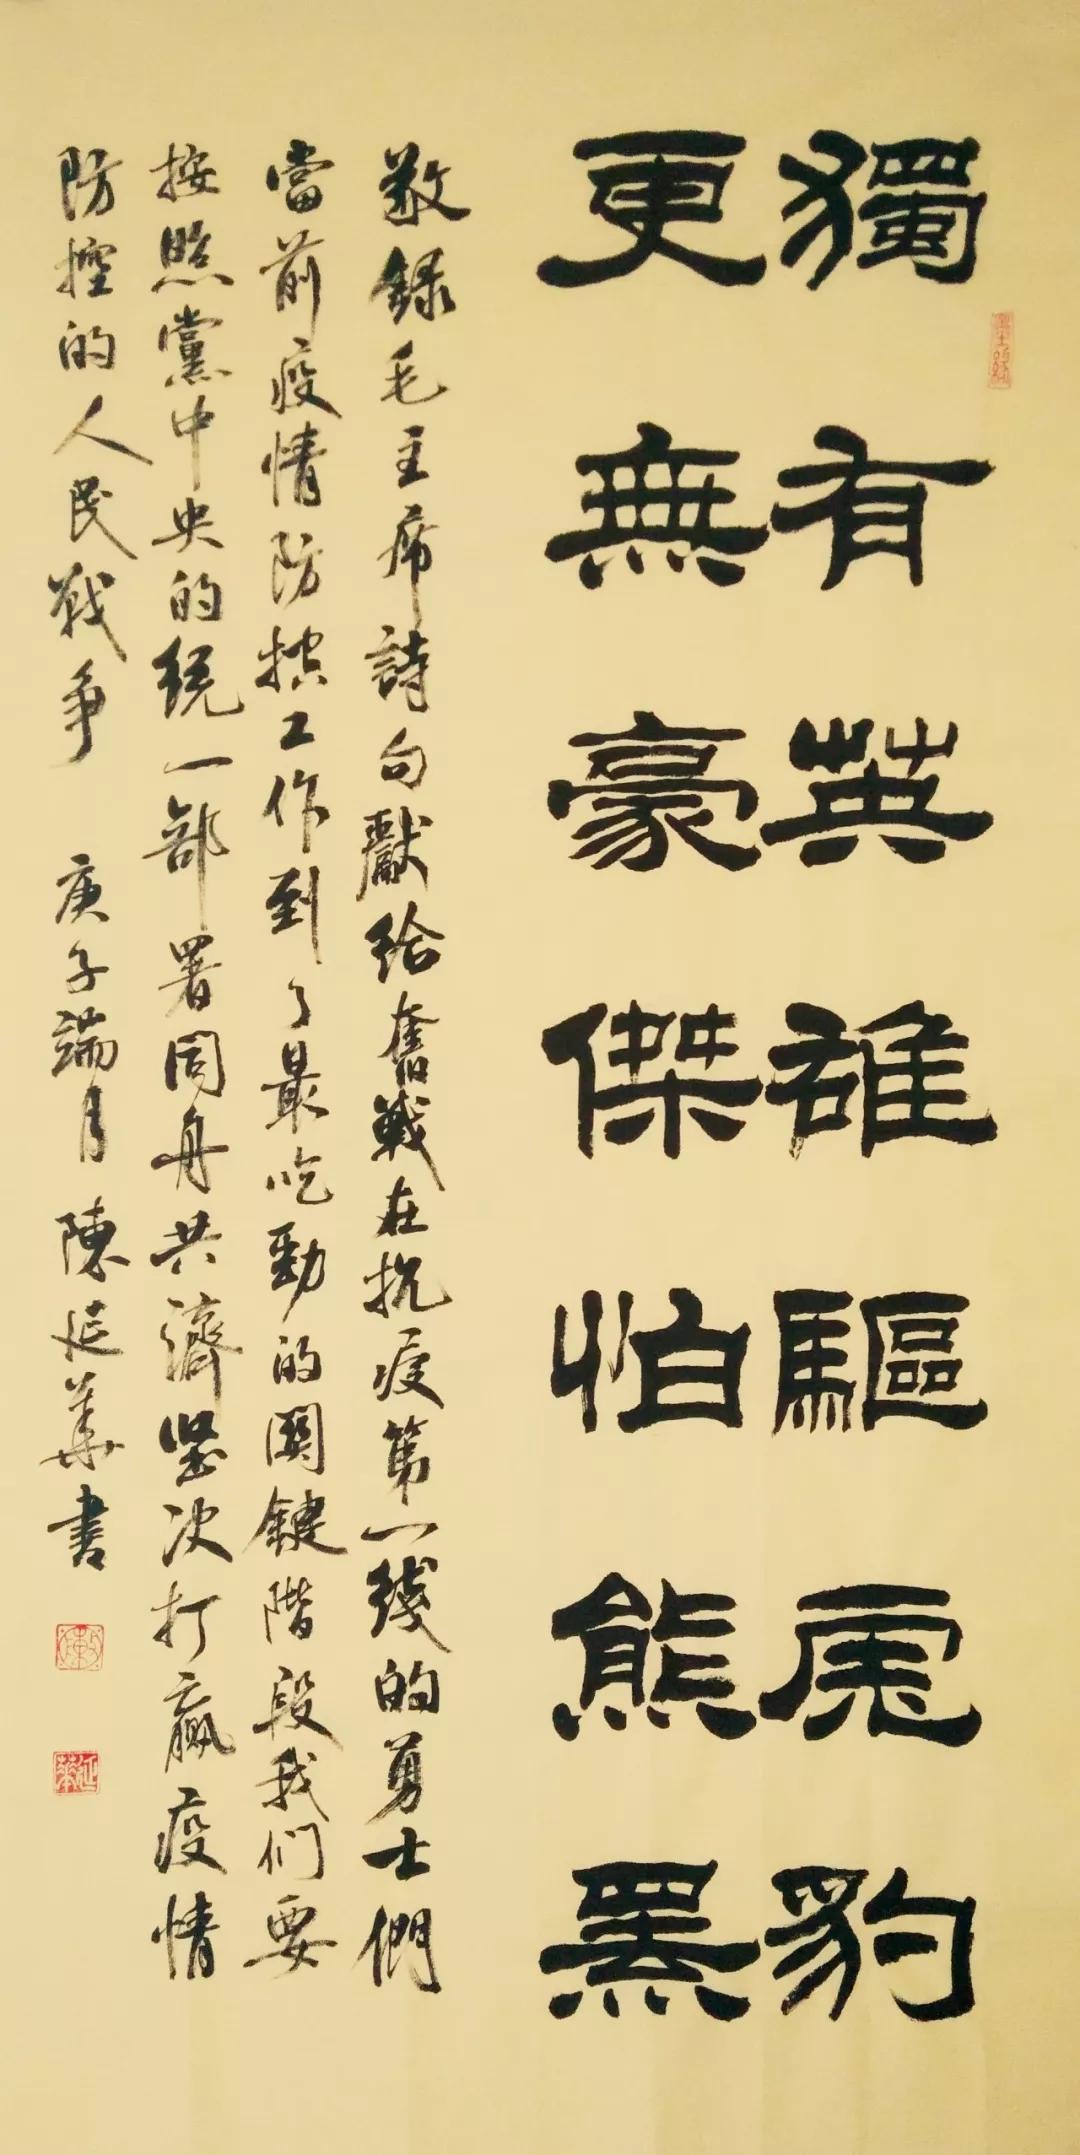 獨有英雄驅虎豹
更無豪傑怕熊羆
敬錄毛主席詩句獻給奮戰在抗疫第一綫的勇士們
當前疫情防控工作到了最吃勁的關鍵階段我们要
按照黨中央的統一部署同舟共濟堅决打贏疫情
防控的人民戰争 庚子端月陳延華書
延華